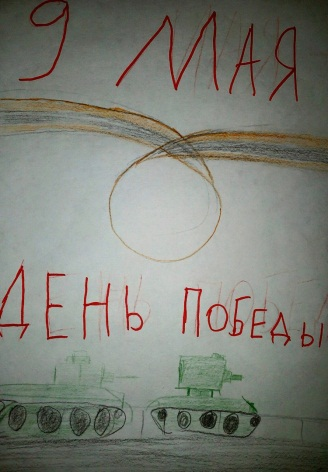 9 МАЯ
ДЕНЬ ПОБЕДЫ